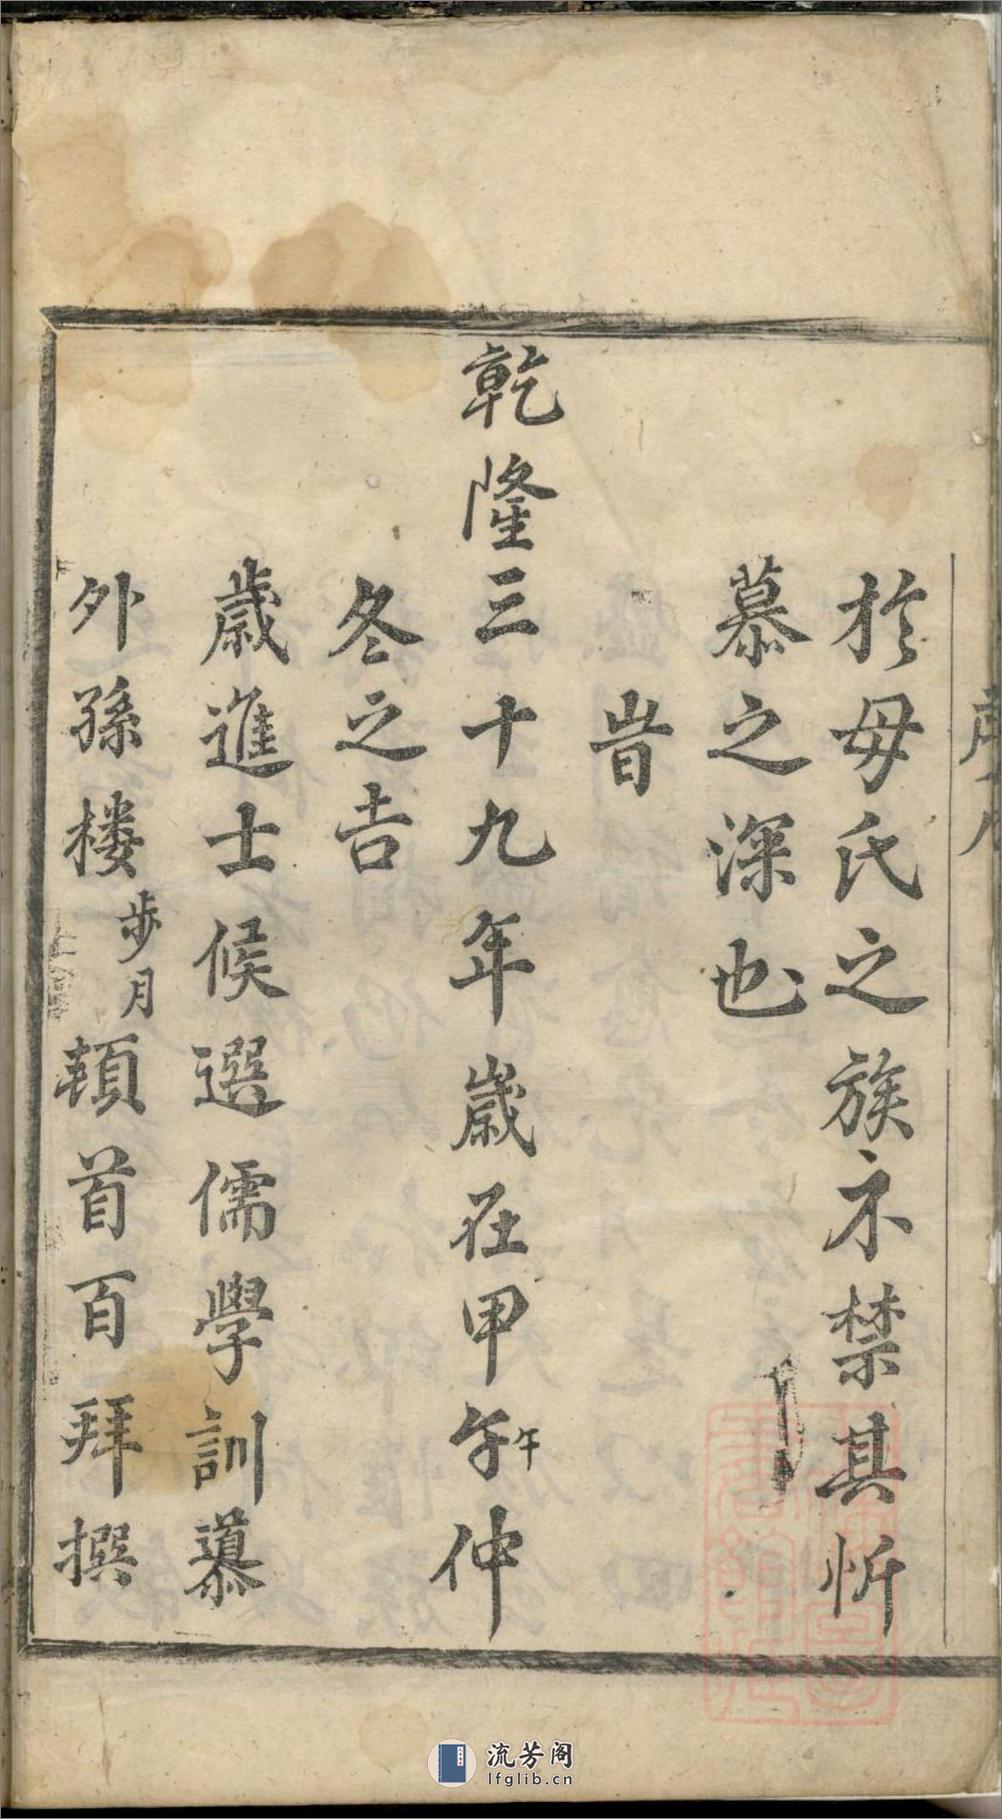 扵毋氏之族不禁其忻
慕之深也
旹
乾隆三十九年歲在甲午午仲
冬之吉
歲進士候選儒學訓
外孫楼步月頓首百拜撰
流芳阁
lfglib.cn